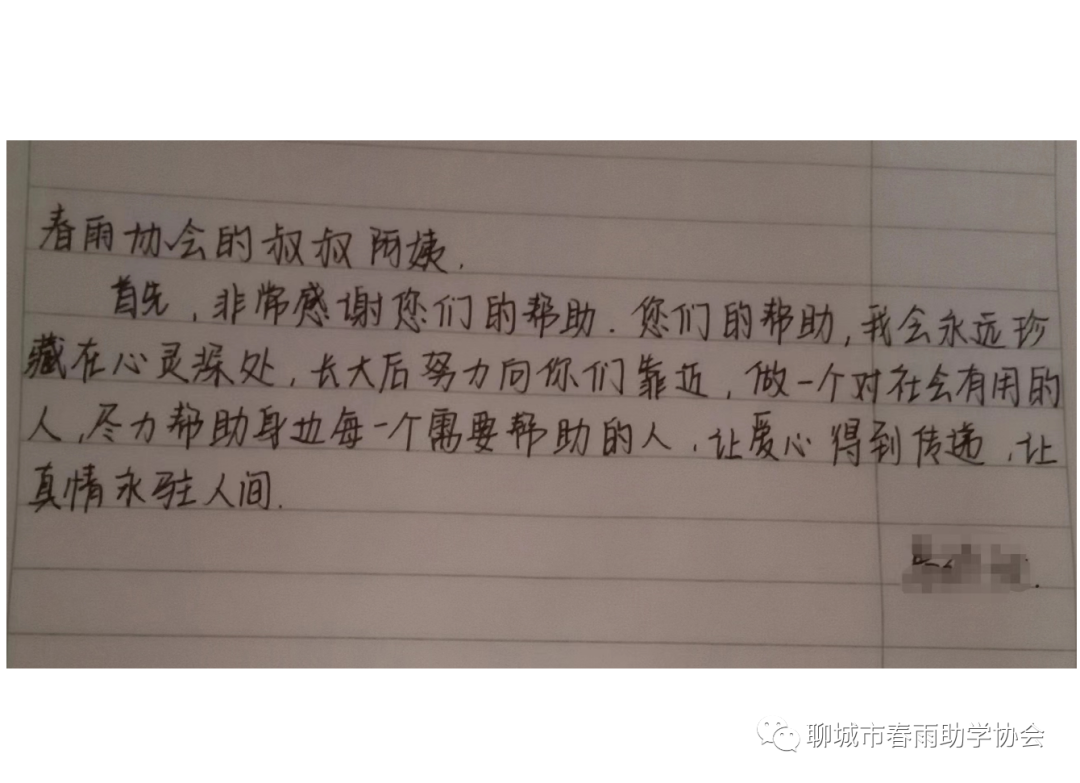 春雨协会的叔叔阿姨.
首先,非常感谢您们的帮助.您们的帮助,我会永远珍
藏在心灵深处,长大后努力向你们靠近,做一个对社会有用的
人,尽力帮助身边每一个需要帮助的人,让爱心得到传递,让
真情永驻人间.
聊城市春雨助学协会